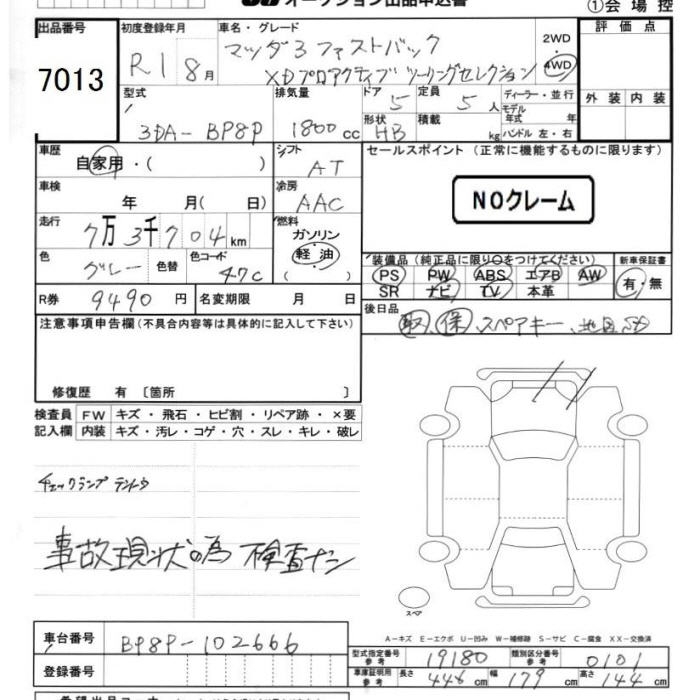 オークション出品申込書
①会場控
出品番号 7013
初度登録年月 R1 8月
車名・グレード マツダ3 ファストバック
XDプロアクティブ ツーリングセレクション
2WD
4WD
評価点
外装 内装
型式 3DA-BP8P
排気量 1800cc
ドア 5
定員 5人
ディーラー・並行
モデル年式 年
形状 HB
積載 kg
ハンドル 左・右
車歴 自家用・( )
シフト AT
セールスポイント (正常に機能するものに限ります)
NOクレーム
車検 年 月( 日)
冷房 AAC
走行 7万3千704km
燃料 ガソリン
軽油
( )
色 グレー
色替
色コード 47C
装備品 (純正品に限り○をつけてください)
PS PW ABS エアB AW
SR ナビ TV 本革
新車保証書
有・無
R券 9490円
名変期限 月 日
後日品 取、保、スペアキー、
注意事項申告欄(不具合内容等は具体的に記入して下さい)
修復歴 有 〔箇所 〕
検査員記入欄
FW キズ・飛石・ヒビ割・リペア跡・×要
内装 キズ・汚レ・コゲ・穴・スレ・キレ・破レ
チェックランプ テントウ
事故現状の為 検査ナシ
スペア
A-キズ E-エクボ U-凹み W-補修跡 S-サビ C-腐食 XX-交換済
車台番号 BP8P-102666
登録番号
型式指定番号 参考 19180
類別区分番号 参考 0101
車庫証明用 参考 長さ 446cm 幅 179cm 高さ 144cm
希望出品コーナー